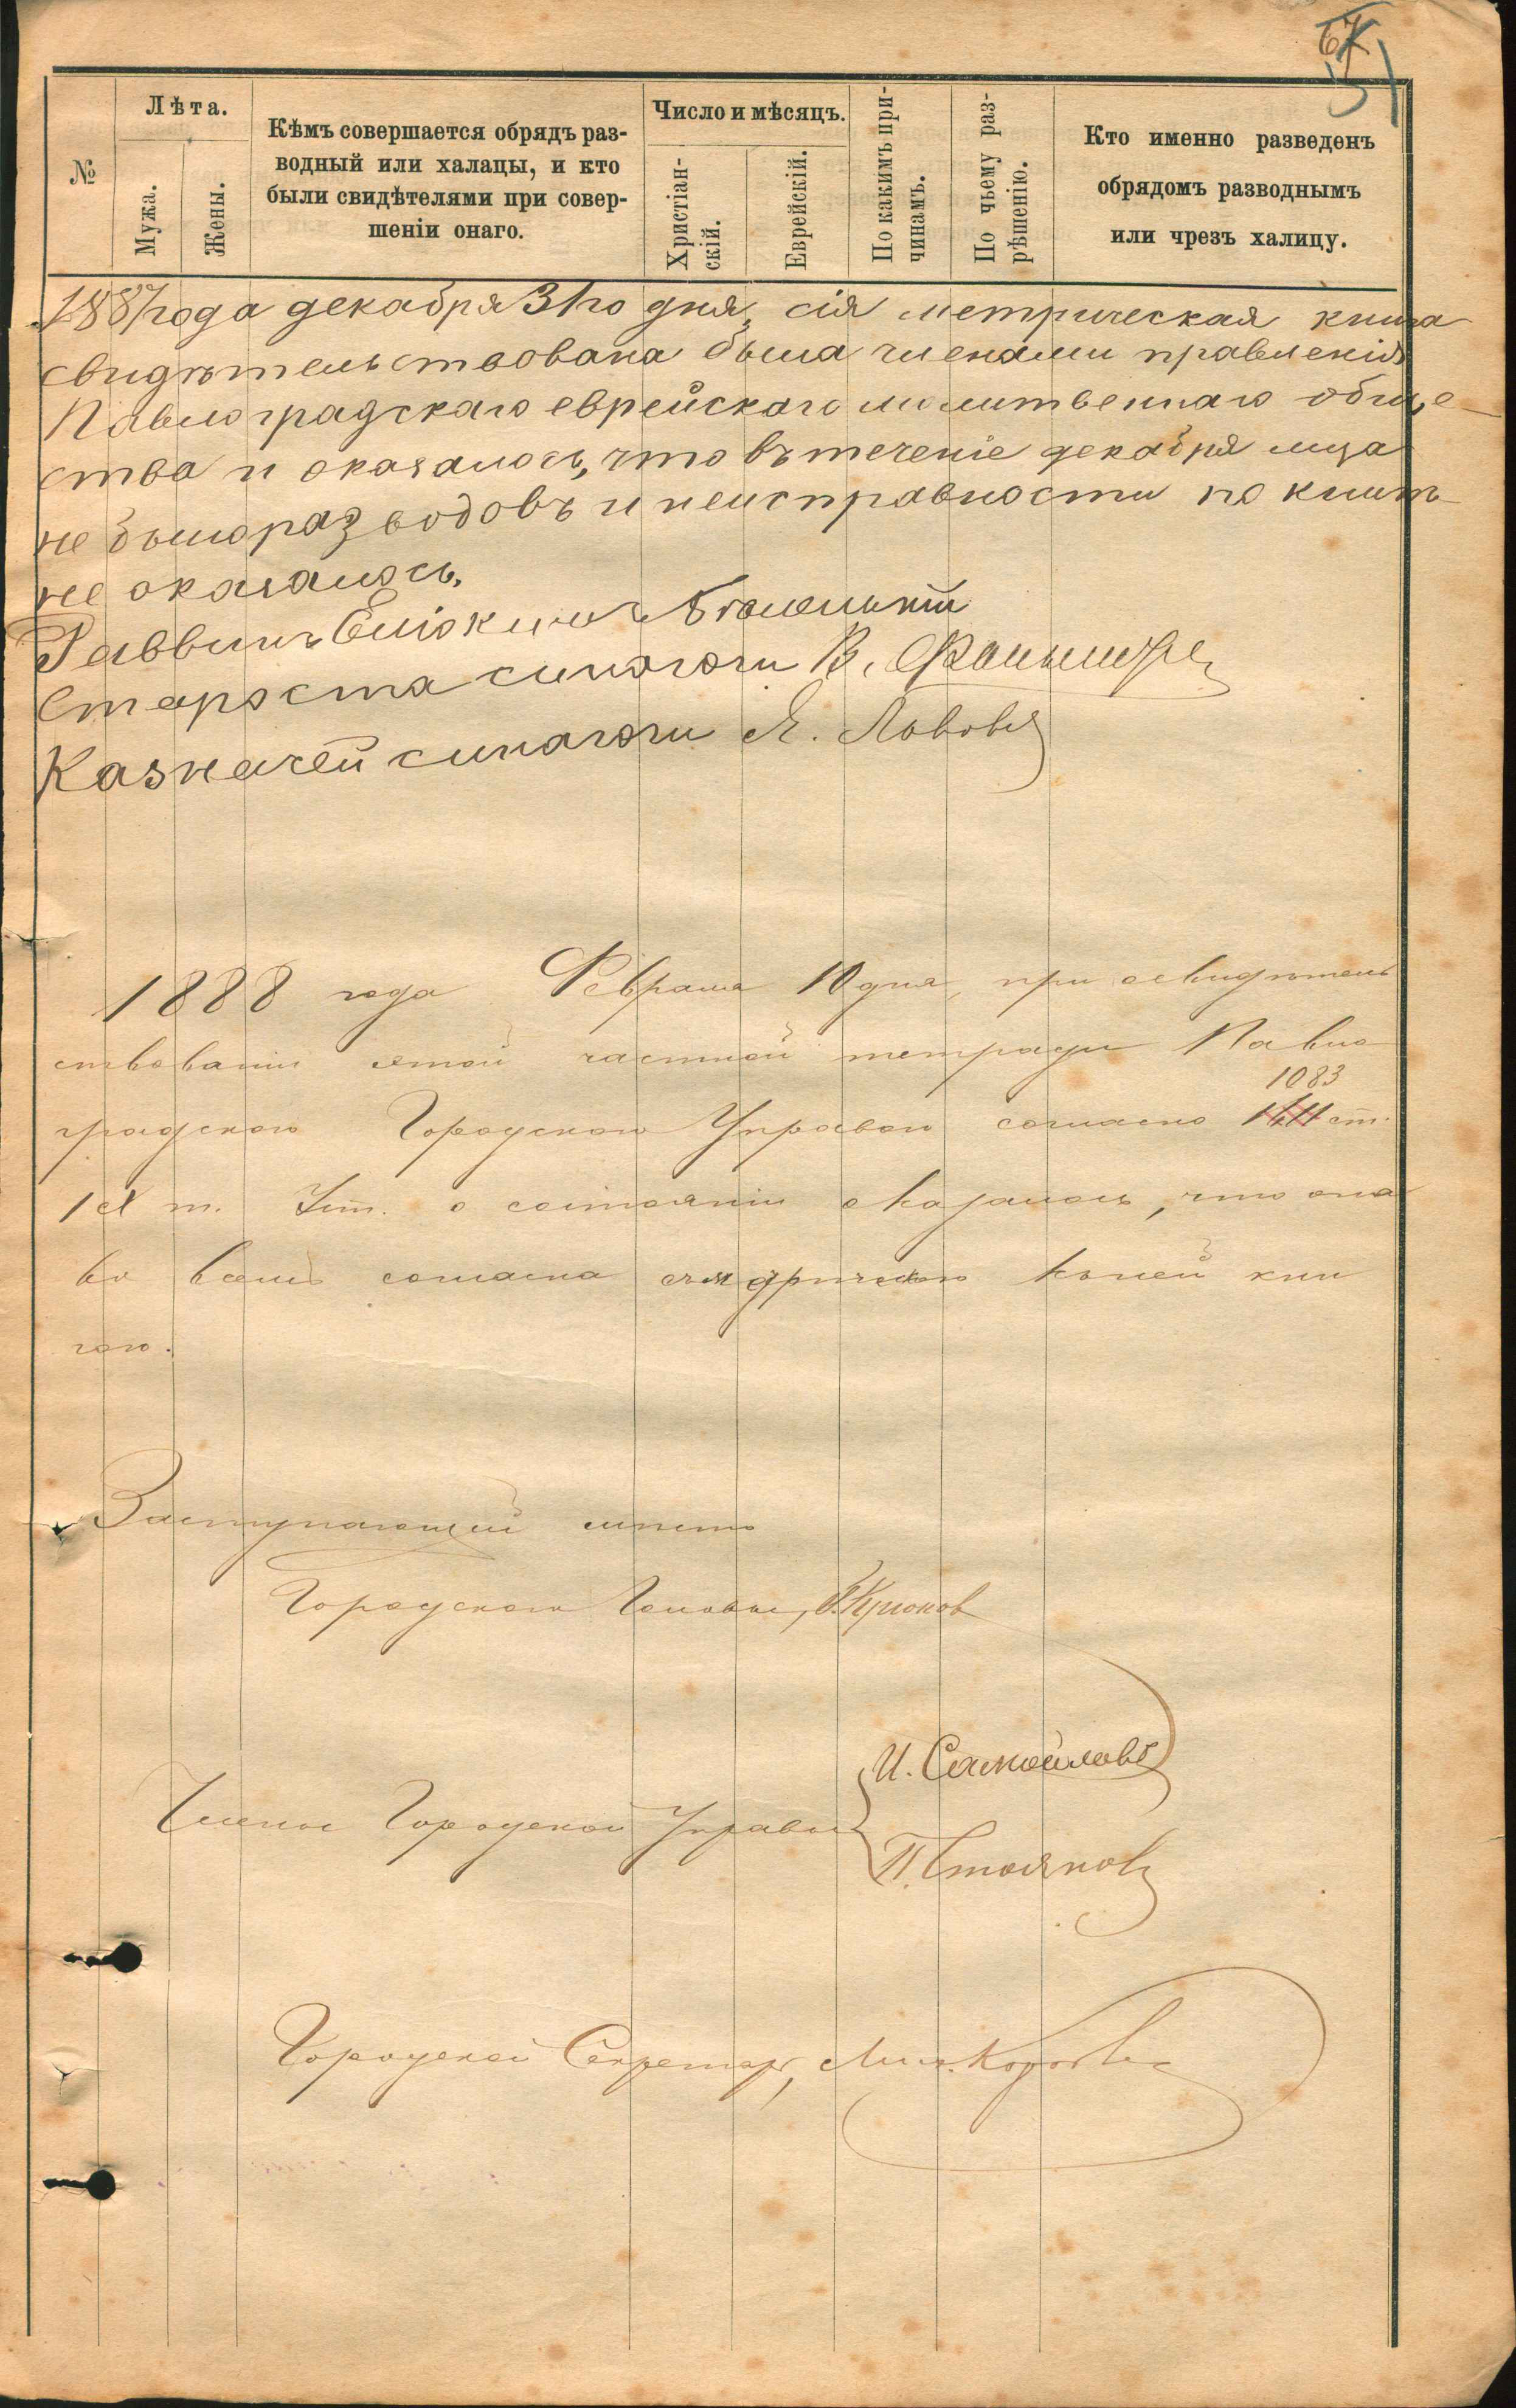 67
51
№
Лѣта.
Мужа.
Жены.
Кѣмъ совершается обрядъ раз-
водный или халацы, и кто
были свидѣтелями при совер-
шеніи онаго.
Число и мѣсяцъ.
Христіан-
скій.
Еврейскій.
По какимъ при-
чинамъ.
По чьему раз-
рѣшенію.
Кто именно разведенъ
обрядомъ разводнымъ
или чрезъ халицу.
1887 года декабря 31го дня, сія метрическая книга
свидѣтельствована была членами правленія
Павлоградскаго еврейскаго молитвеннаго обще-
ства и оказалось, что въ теченіе декабря мца
не было разводовъ и неисправности по книгѣ
не оказалось.
Раввинъ
Староста синагоги В.
Казначей синагоги Я. Львовъ
1888 года Февраля 10 дня, при освидѣтель
ствованіи этой частной тетради Павло
1083
градскою Городскою Управою согласно 1611 ст.
IX т. Уст. о состояніи оказалось, что она
во всемъ согласна съ книгою
Заступающій мѣсто
Городскаго Головы, Крюков
И. Самойловъ
Члены Городской Управы
П. Стояновъ
Городской Секретарь,